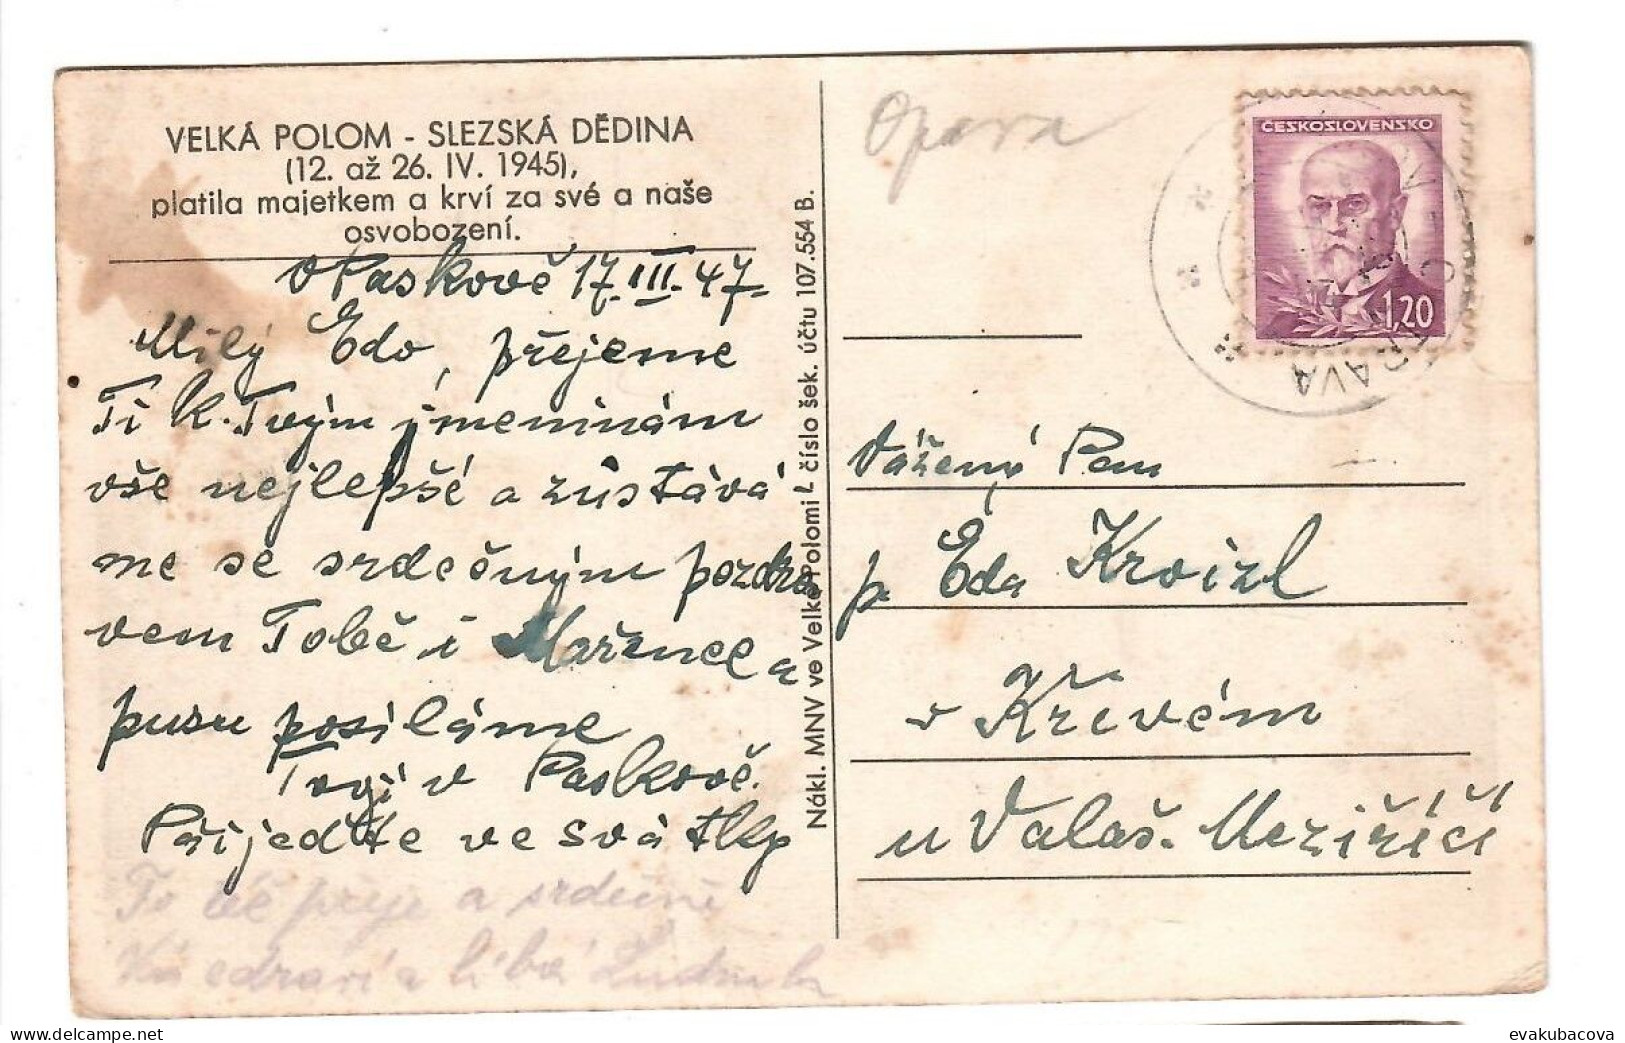 VELKÁ POLOM - SLEZSKÁ DĚDINA
(12. až 26. IV. 1945),
platila majetkem a krví za své a naše
osvobození.
V Paskově 17. III. 47.
Milý Edo, přejeme
Ti k Tvým jmeninám
vše nejlepšé a zůstává
me se srdečným pozdra
vem Tobě i Mařence a
pusu posíláme
Tvoji v Paskově.
Přijeďte ve svátky
To též přeje a srdečně
Vás zdraví a líbá Ludmila
Nákl. MNV ve Velké Polomi číslo šek. účtu 107.554 B.
Opava
ČESKOSLOVENSKO
1,20
Vážený Pan
p. Eda Kroizl
v Křivém
u Valaš. Meziříčí
delcampe.net
evakubacova